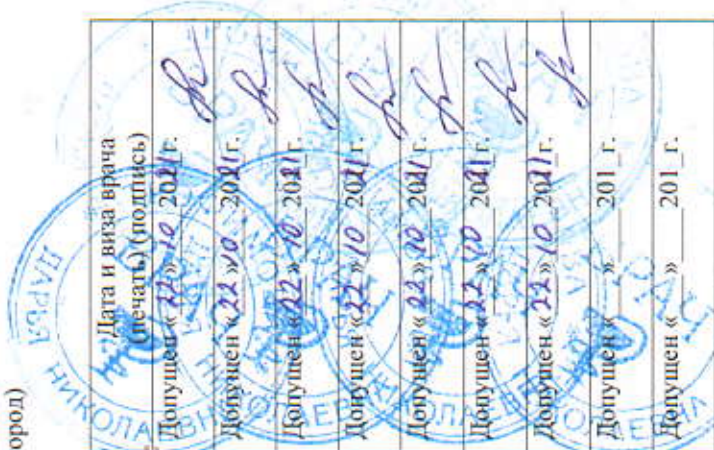 ород)
Дата и виза врача
(печать) (подпись)
Допущен «22» 10 2021г.
Допущен «22» 10 2021г.
Допущен «22» 10 2021г.
Допущен «22» 10 2021г.
Допущен «22» 10 2021г.
Допущен «22» 10 2021г.
Допущен «22» 10 2021г.
Допущен «___» ___ 201_г.
Допущен «___» ___ 201_г.
ДАРЬЯ
НИКОЛАЕВНА
НИКОЛАЕВНА
ВРАЧ